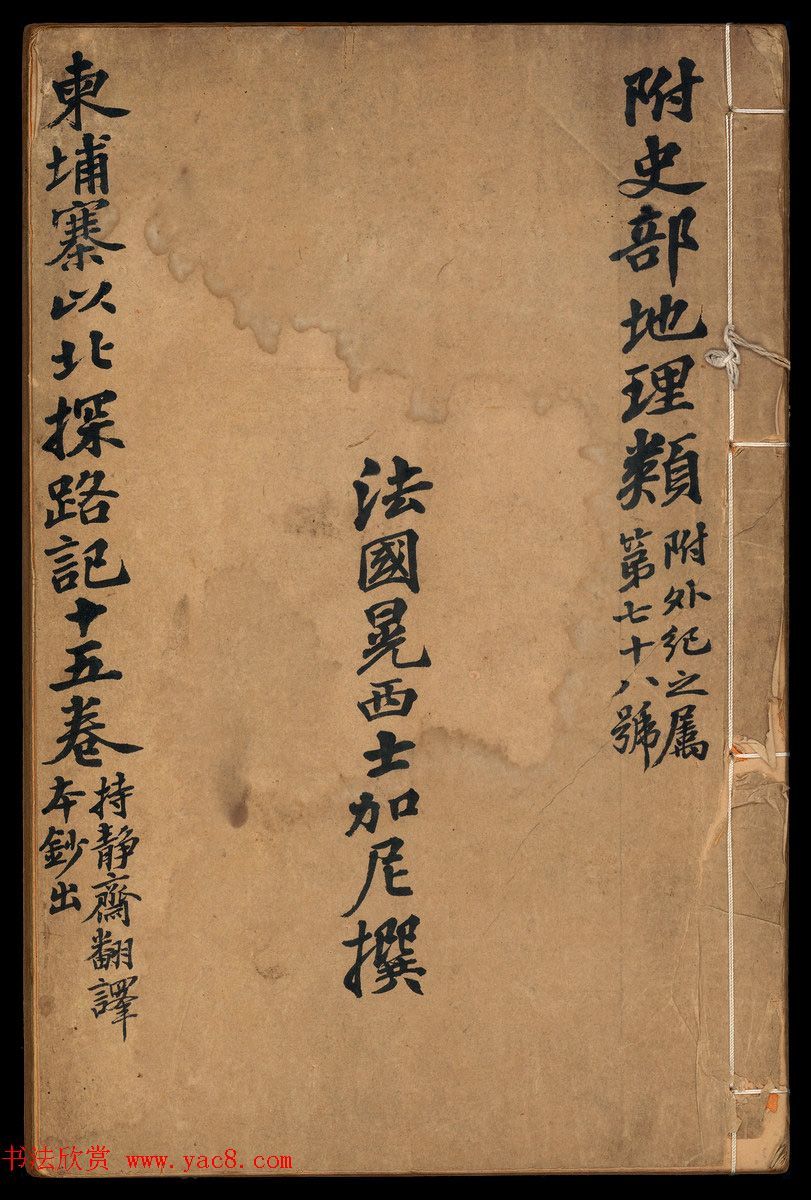 附史部地理類
附外紀之属
第七十八號
法國晃西士加尼撰
柬埔寨以北探路記十五卷
持靜齋翻譯
本鈔出
书法欣赏 www.yac8.com